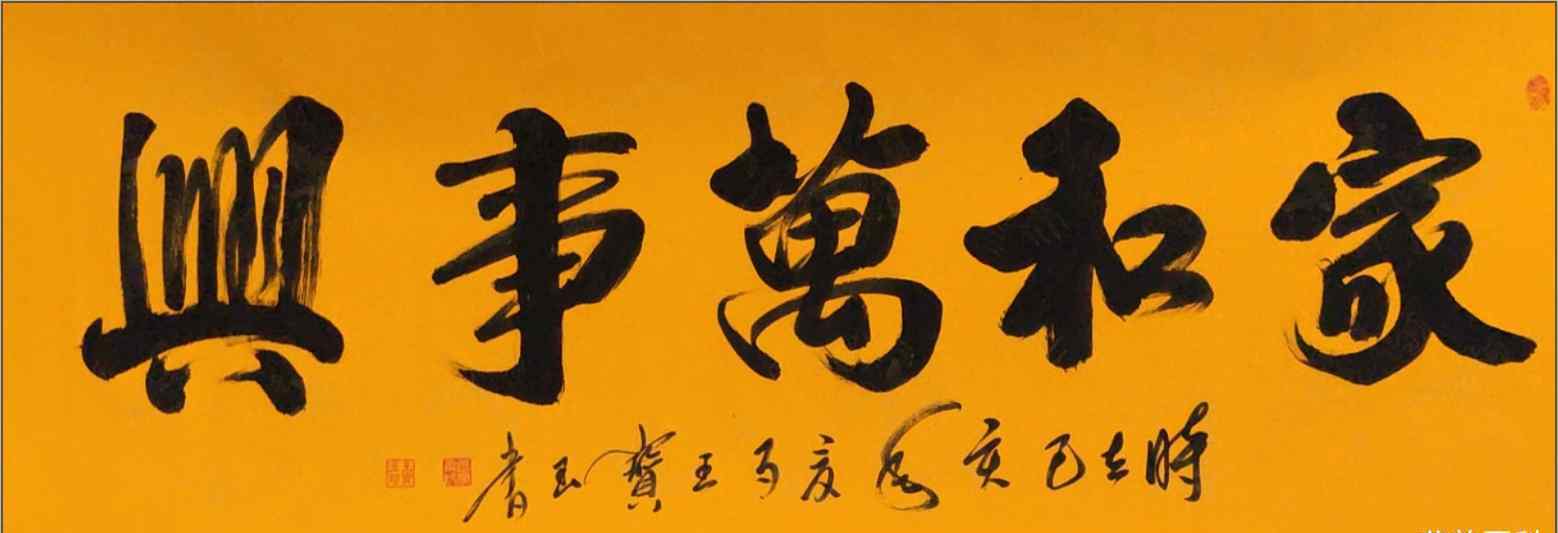 家和萬事興
時在己亥年夏月王寶玉書